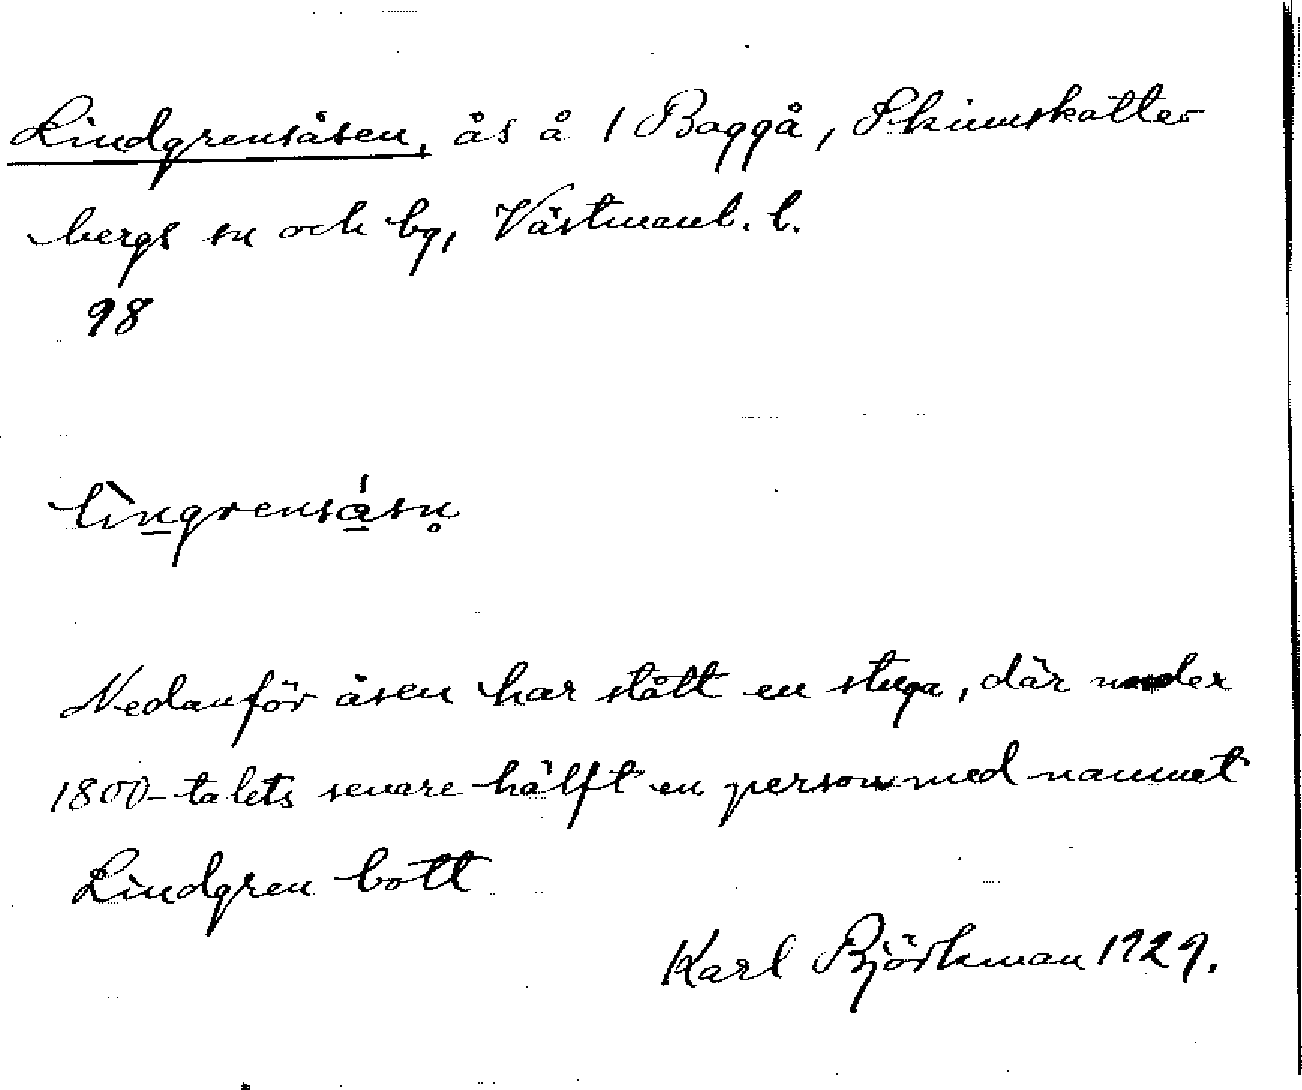 Lindgrensåsen, ås å 1 Baggå, Skinnskatte-
bergs sn och bg, Västmanl. l.
98
lìn̲grensá̲sn̥
Nedanför åsen har stått en stuga, där under
1800-talets senare hälft en person med namnet
Lindgren bott
Karl Björkman 1929.